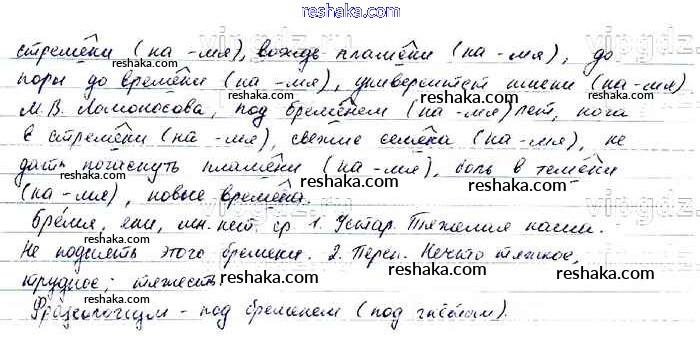 стремени (на -мя), вождь племени (на -мя), до
поры до времени (на -мя), университет имени (на -мя)
М.В. Ломоносова, под бременем (на -мя) лет, нога
в стремени (на -мя), свежие семена (на -мя), не
дать погаснуть пламени (на -мя), боль в темени
(на -мя), новые времена.
Бремя, ени, мн. нет. ср. 1. Устар. Тяжелая ноша.
Не поднять этого бремени. 2. Перен. Нечто тяжкое,
трудное; тяжесть
Фразеологизм - под бременем (под гнётом).
reshaka.com
reshaka.com
reshaka.com
reshaka.com
reshaka.com
reshaka.com
reshaka.com
reshaka.com
reshaka.com
reshaka.com
reshaka.com
reshaka.com
vipgdz.ru
vipgdz